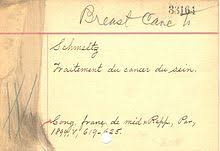 33104
Breast Canc
Schmeltz
Traitement du cancer du sein.
Cong. franç. de méd. Rapp., Par,
1894, V, 619-625.